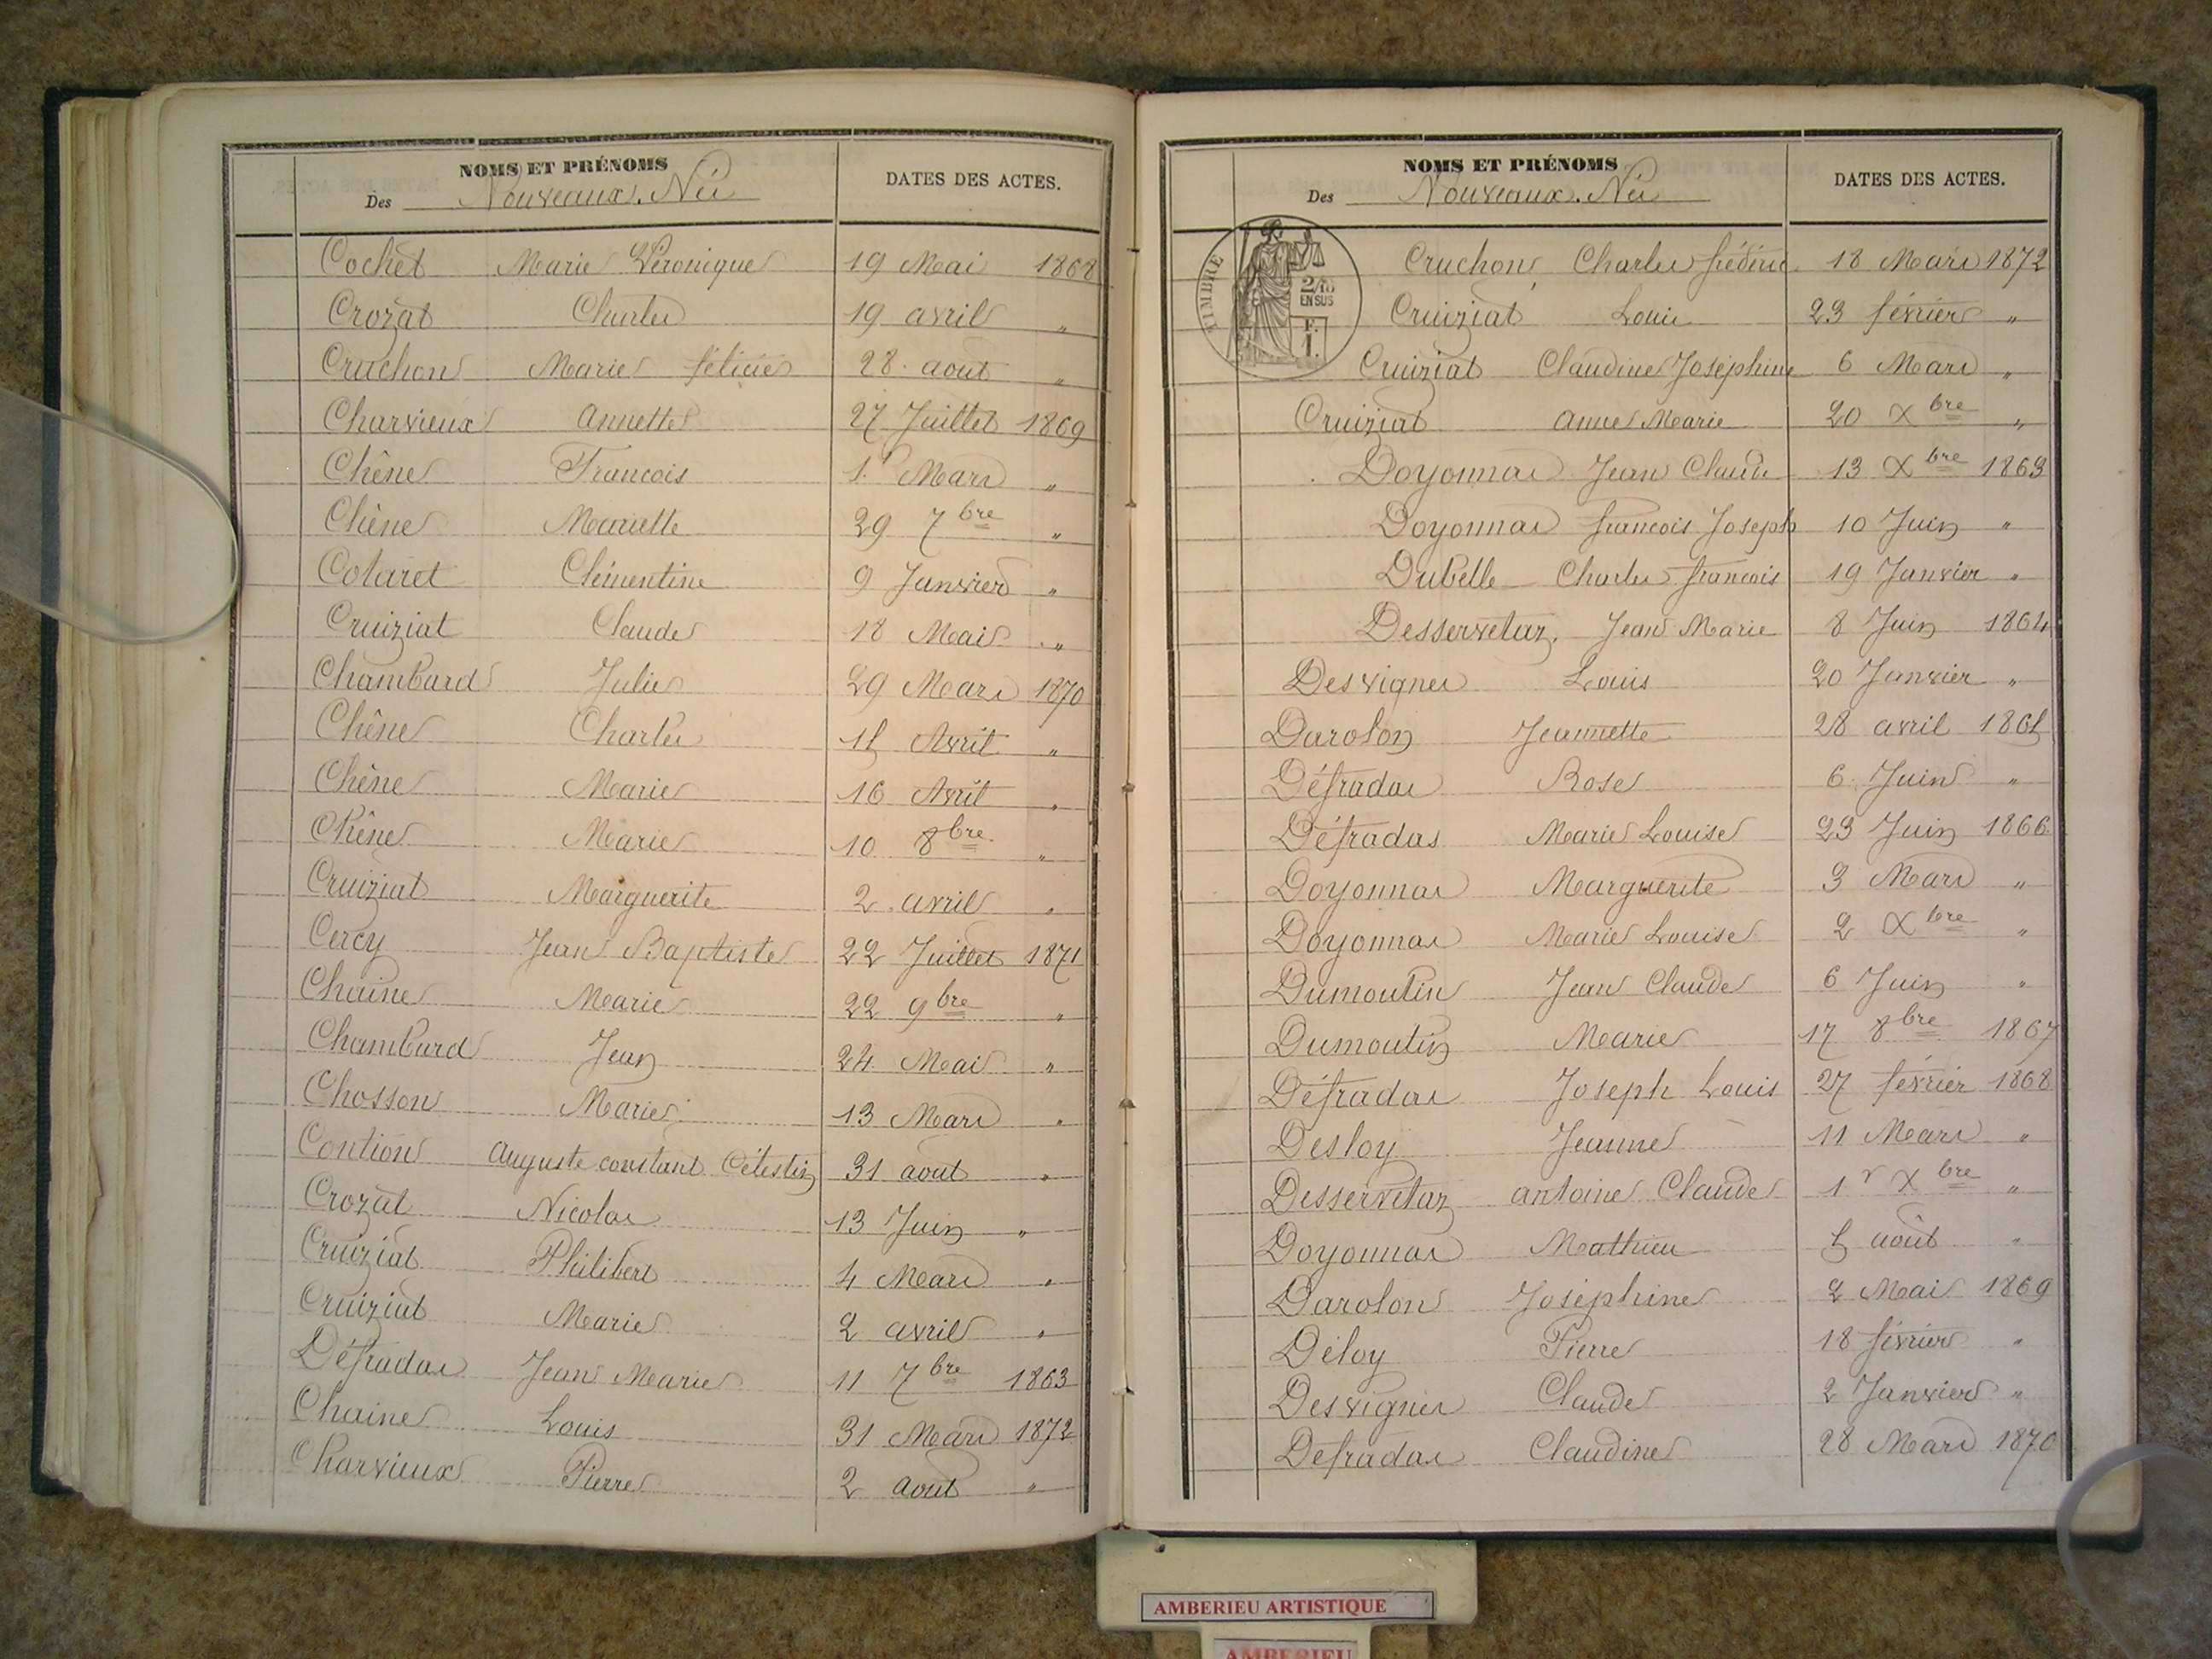 NOMS ET PRÉNOMS
Des Nouveaux. Nés
DATES DES ACTES.
Cochet Marie Véronique 19 Mai 1868
Crozat Charles 19 avril "
Cruchon Marie félicie 28. aout "
Charvieux annette 27 Juillet 1869
Chêne Francois 1r Mars "
Chêne Mariette 29 7bre "
Cotaret Clémentine 9 Janvier "
Cruiziat Claude 18 Mai "
Chambard Julie 29 Mars 1870
Chêne Charles 15 Avril "
Chêne Marie 16 Avril "
Chêne Marie 10 8bre "
Cruiziat Marguerite 2 avril "
Cercy Jean Baptiste 22 Juillet 1871
Chaine Marie 22 9bre "
Chambard Jean 24 Mai "
Chosson Marie 13 Mars "
Contion auguste constant Célestin 31 aout "
Crozat Nicolas 13 Juin "
Cruiziat Philibert 4 Mars "
Cruiziat Marie 2 avril "
Défradas Jean Marie 11 7bre 1863
Chaine Louis 31 Mars 1872
Charvieux Pierre 2 aout "
NOMS ET PRÉNOMS
Des Nouveaux. Nés
DATES DES ACTES.
TIMBRE
2/10
EN SUS
F.
1.
Cruchon Charles frédéric 18 Mars 1872
Cruiziat Louis 23 février "
Cruiziat Claudine Joséphine 6 Mars "
Cruiziat anne Marie 20 Xbre "
Doyonnas Jean Claude 13 Xbre 1863
Doyonnas francois Joseph 10 Juin "
Dubelle Charles francois 19 Janvier "
Desservetaz. Jean Marie 8 Juin 1864
Desvignes Louis 20 Janvier "
Darolon Jeannette 28 avril 1865
Défradas Rose 6 Juin "
Défradas Marie Louise 23 Juin 1866
Doyonnas Marguerite 3 Mars "
Doyonnas Marie Louise 2 Xbre "
Dumoulin Jean Claude 6 Juin "
Dumoulin Marie 17 8bre 1867
Défradas Joseph Louis 27 février 1868
Desloy Jeanne 11 Mars "
Desservetaz antoine Claude 1r Xbre "
Doyonnas Mathieu 5 août "
Darolon Joséphine 2 Mai 1869
Déloy Pierre 18 février "
Desvignes Claude 2 Janvier "
Defradas Claudine 28 Mars 1870
AMBERIEU ARTISTIQUE
AMBERIEU